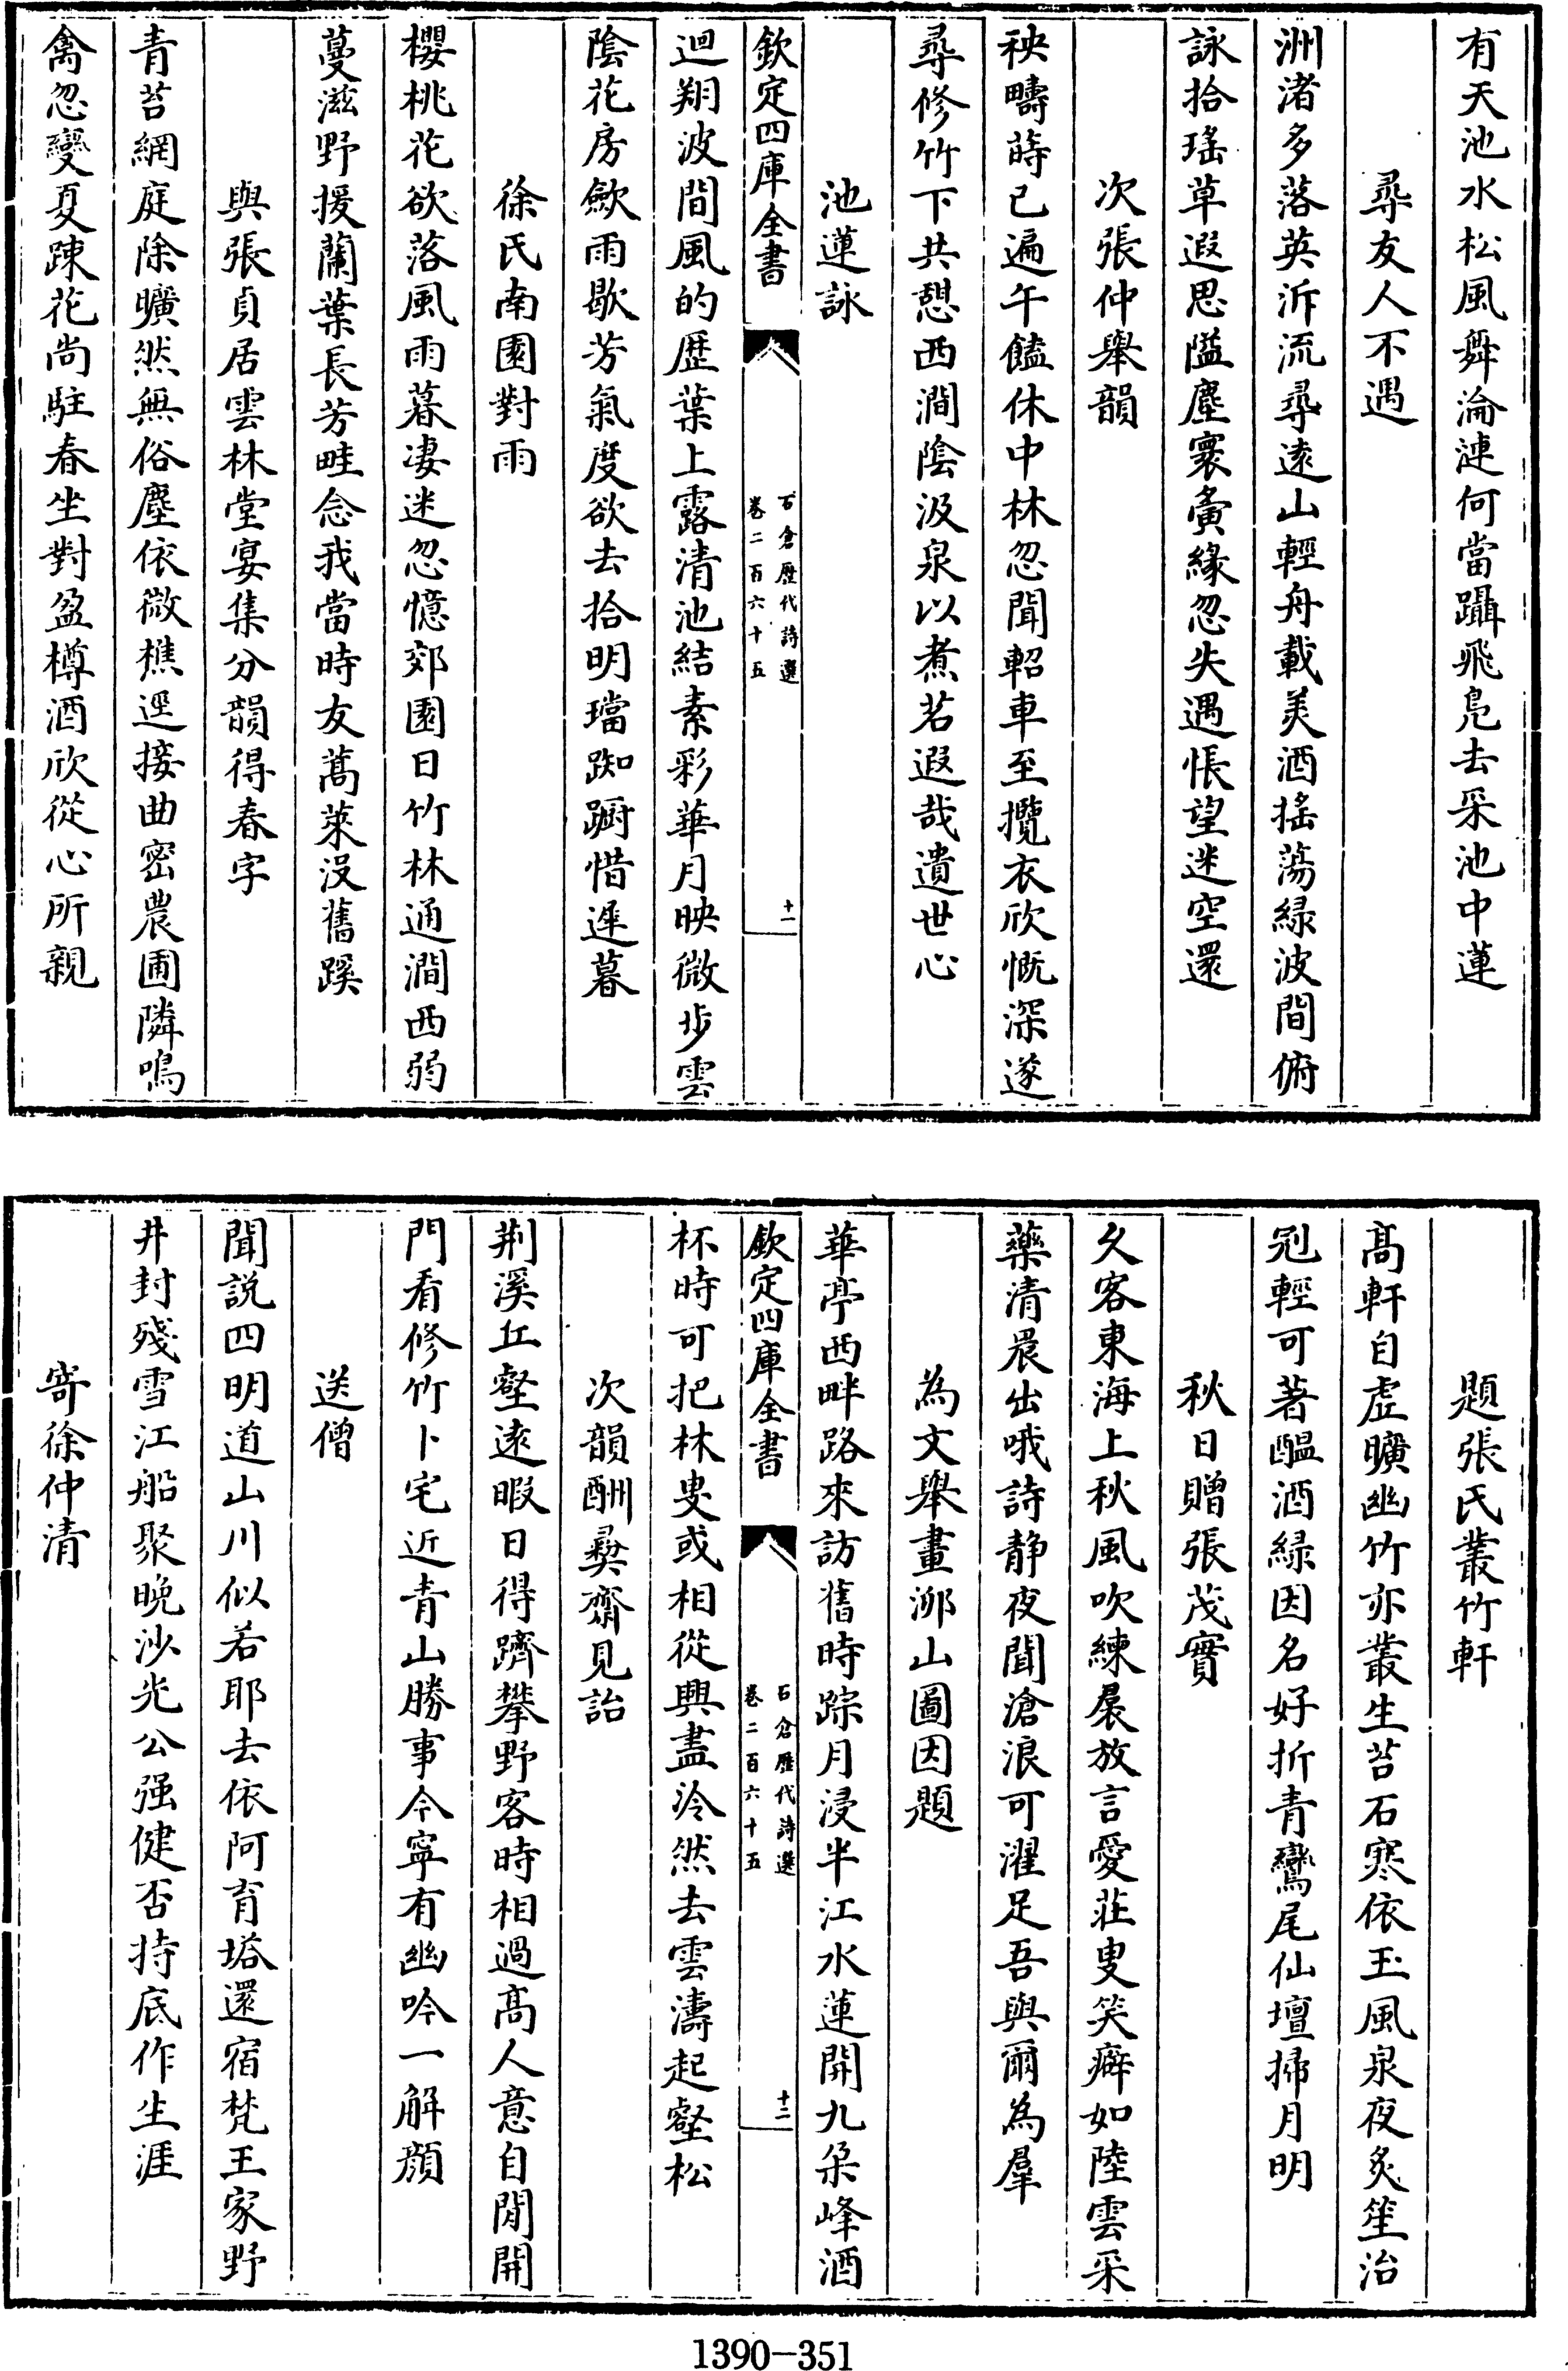 有天池水松風舞淪漣何當躡飛鳧去采池中蓮
尋友人不遇
洲渚多落英泝流尋遠山輕舟載美酒搖蕩緑波間俯
詠拾瑤草遐思隘塵寰夤緣忽失遇悵望迷空還
次張仲舉韻
秧疇蒔已遍午饁休中林忽聞軺車至攬衣欣慨深遂
尋修竹下共憩西澗陰汲泉以煮茗遐哉遺世心
池蓮詠
欽定四庫全書
石倉歷代詩選
卷二百六十五
十一
迴翔波間風的歴葉上露清池結素彩華月映微步雲
陰花房歛雨歇芳氣度欲去拾明璫踟蹰惜遲暮
徐氏南園對雨
櫻桃花欲落風雨暮凄迷忽憶郊園日竹林通澗西弱
蔓滋野援蘭葉長芳畦念我當時友蒿萊没舊蹊
與張貞居雲林堂宴集分韻得春字
青苔網庭除曠然無俗塵依微樵逕接曲密農圃隣鳴
禽忽變夏踈花尚駐春坐對盈樽酒欣從心所親
題張氏叢竹軒
髙軒自虚曠幽竹亦叢生苔石寒依玉風泉夜炙笙治
冠輕可著醖酒緑因名好折青鸞尾仙壇掃月明
秋日贈張茂實
久客東海上秋風吹練裠放言愛莊叟笑癖如陸雲采
藥清晨出哦詩静夜聞滄浪可濯足吾與爾為羣
為文舉畫泖山圖因題
華亭西畔路來訪舊時踪月浸半江水蓮開九朶峰酒
欽定四庫全書
石倉歷代詩選
卷二百六十五
十二
杯時可把林叟或相從興盡泠然去雲濤起壑松
次韻酬彛齋見詒
荆溪丘壑遠暇日得躋攀野客時相過髙人意自閒開
門看修竹卜宅近青山勝事今寧有幽吟一解顔
送僧
聞説四明道山川似若耶去依阿育塔還宿梵王家野
井封殘雪江船聚晚沙光公强健否持底作生涯
寄徐仲清
1390-351